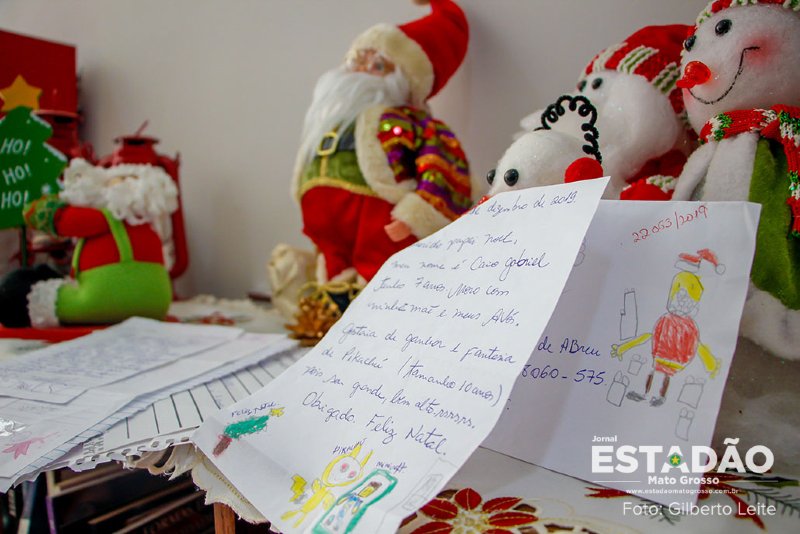 HO!
HO!
HO!
de dezembro de 2019.
papai noel,
meu nome é Caio Gabriel
Tenho 7 anos Moro com
minha mãe e meus Avós.
Gostaria de ganhar 1 fantasia
de Pikachú (tamanho 10 anos)
sou grande, bem alto rsrsrs.
Obrigado. Feliz Natal.
PIKACHU
22053/2019
de ABreu
8060-575.
Jornal
ESTADÃO
Mato Grosso
www.estadaomatogrosso.com.br
Foto: Gilberto Leite